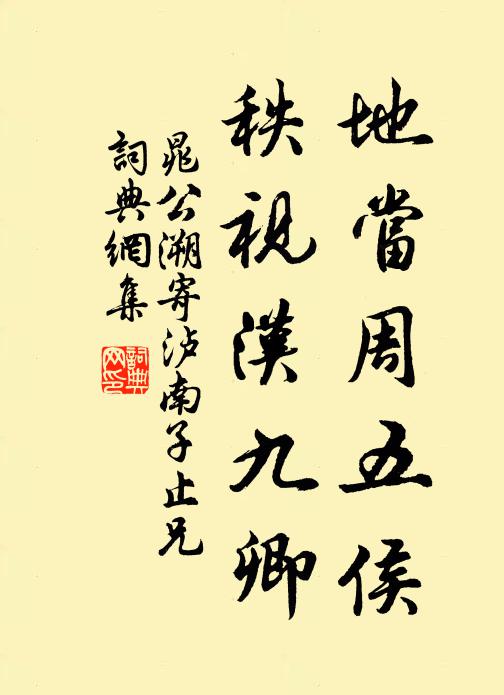 地當周五侯
秩視漢九卿
晁公溯寄泸南子止兄
詞典網集
詞典网印